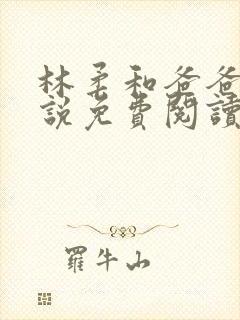 林柔和爸爸
說免費閱讀
羅牛山